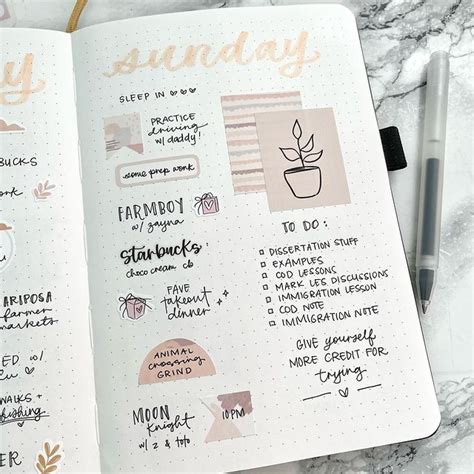 y
sunday
SLEEP IN
BUCKS
PRACTICE
driving
w/ daddy!
some prep work
FARMBOY
w/ zayna
Starbucks
choco cream cb
MARIPOSA
farmer
markets
FAVE
takeout
dinner
TO DO:
DISSERTATION STUFF
EXAMPLES
COD LESSONS
MARK LES DISCUSSIONS
IMMIGRATION LESSON
COD NOTE
IMMIGRATION NOTE
ED w/
WALKS +
ANIMAL
crossing
GRIND
GIVE yourself
MORE CREDIT FOR
trying
MOON
Knight
w/ z & toto
10PM
ER